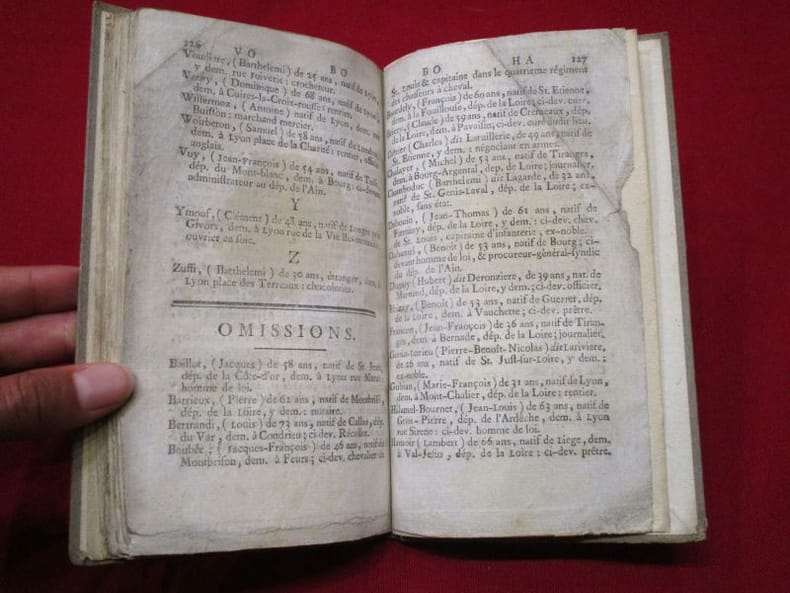 126 VO BO
Voullere, (Barthelemi) de 25 ans, natif de Lyon,
y dem. rue Juiverie: crocheteur.
Voury, (Dominique) de 68 ans, natif de Lyon,
dem. à Cuires-la-Croix-rousse: rentier.
Willermoz, (Antoine) natif de Lyon, dem. rue
Buisson: marchand mercier.
Wouberon, (Samuel) de 58 ans, natif de Londres,
dem. à Lyon place de la Charité: rentier,
anglais.
Vuy, (Jean-François) de 54 ans, natif de
dép. du Mont-blanc, dem. à Bourg: ci-devant
administrateur au dép. de l'Ain.
Y
Ymouf, (Clément) de 48 ans, natif de Longes près
Givors, dem. à Lyon rue de la Vie
ouvrier en soie.
Z
Zuffi, (Barthelemi) de 30 ans, étranger, dem. à
Lyon place des Terreaux: chocolatier.
OMISSIONS.
Baillot, (Jacques) de 58 ans, natif de St. Jean,
dép. de la Côte-d'or, dem. à Lyon rue
homme de loi.
Barrieux, (Pierre) de 62 ans, natif de
dép. de la Loire, y dem.: notaire.
Bertrandi, (Louis) de 73 ans, natif de Callas, dép.
du Var, dem. à Condrieu; ci-dev. Récollet.
Boubée, (Jacques-François) de 46 ans, natif de
Montbrison, dem. à Feurs; ci-dev. chevalier de
BO HA 127
St. Louis & capitaine dans le quatrième régiment
des chasseurs à cheval.
(François) de 60 ans, natif de St. Etienne,
dem. à la Fouillouse, dép. de la Loire; ci-dev. curé.
(Claude) de 59 ans, natif de Cremeaux, dép.
de la Loire, dem. à Pavaisin; ci-dev. curé dudit lieu.
(Charles) dit Lataillerie, de 49 ans, natif de
St. Etienne, y dem.: négociant en armes.
Chalayer, (Michel) de 53 ans, natif de Tiranges,
dem. à Bourg-Argental, dep. de la Loire; journalier.
Chamboduc (Barthelemi) dit Lagarde, de 32 ans,
natif de St. Genis-Laval, dép. de la Loire; ex-
noble, sans état.
Dabouin, (Jean-Thomas) de 61 ans, natif de
dép. de la Loire, y dem.: ci-dev. chev.
de St. Louis, capitaine d'infanterie, ex-noble.
(Benoît) de 53 ans, natif de Bourg; ci-
devant homme de loi, & procureur-général-syndic
du dép. de l'Ain.
Dupuy (Hubert) dit Deronziere, de 39 ans, nat. de
dép. de la Loire, y dem.; ci-dev. officier.
(Benoît) de 53 ans, natif de Guerret, dép.
de la Loire, dem. à Vauchette; ci-dev. prêtre.
Francon, (Jean-François) de 36 ans, natif de Tiran-
ges, dem. à Bernade, dép. de la Loire; journalier.
(Pierre-Benoît-Nicolas) dit Lariviere,
de 26 ans, natif de St. Just-sur-Loire, y dem.:
ex-noble.
Gubian, (Marie-François) de 31 ans, natif de Lyon,
dem. à Mont-Chalier, dép. de la Loire: rentier.
Hilamel-Bournet, (Jean-Louis) de 63 ans, natif de
Gros-Pierre, dép. de l'Ardèche, dem. à Lyon
rue Sirene: ci-dev. homme de loi.
(Lambert) de 66 ans, natif de Liege, dem.
à Val-Jésus, dép. de la Loire: ci-dev. prêtre.